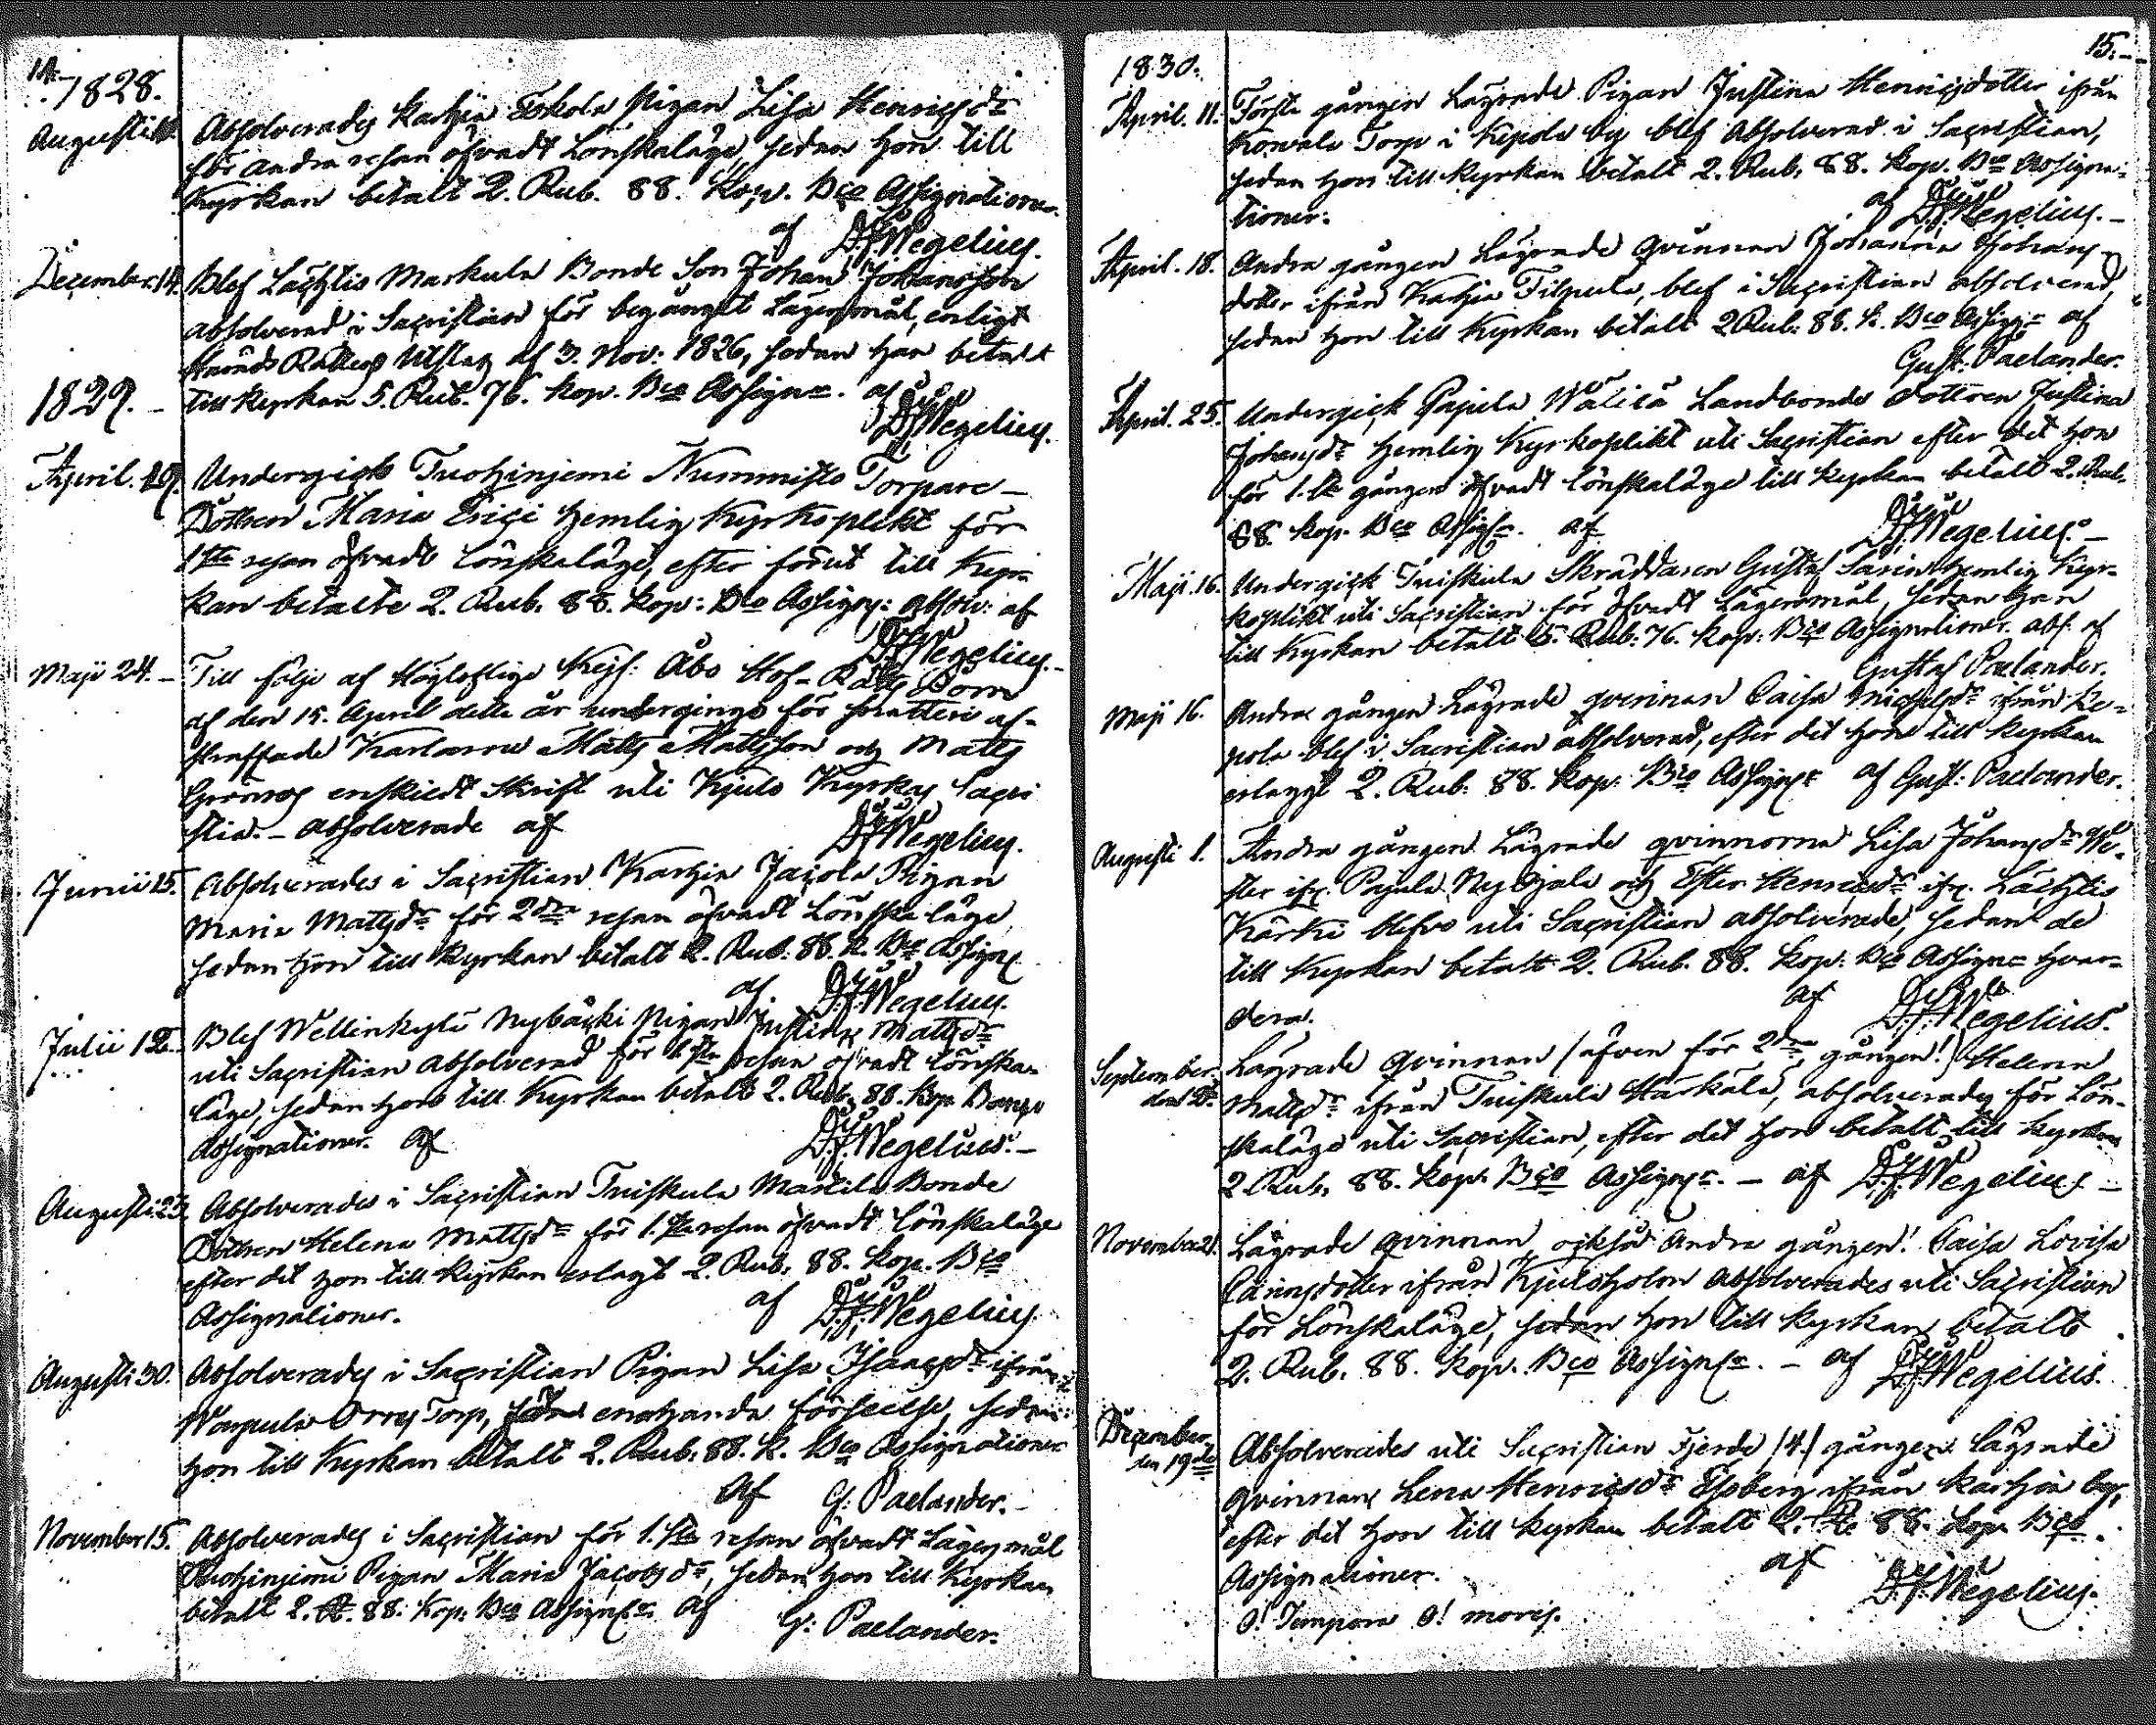 14.
1828.
Augusti
Absolverades Karhia Eskola Pigan Lisa Henricsdr
för andra resan öfvadt Lönskaläge, sedan hon till
Kyrkan betalt 2. Rub. 88. Kop. Bco Assignationer.
af D.F. Wegelius.
December 14.
Blef Lächtis Markula Bonde Son Johan Johansson
absolverad i Sacristian för begånget Lägersmål, enligt
Härads Rättens Utslag af 3. Nov: 1826, sedan han betalt
till Kyrkan 5. Rub. 76. kop. Bco Assignr. af
D.F. Wegelius.
1829.
April. 19.
Undergick Tuohinjemi Nummisto Torpare-
Dottren Maria Erici hemlig Kyrkoplikt för
1sta resan öfvadt Lönskaläge, efter förut till Kyr-
kan betalte 2. Rub. 88. kop: Bco Assignr: absolv: af
D.F. Wegelius.
Maji 24.
Till följe af Högloflige Kejs: Åbo Hof-Rätts Dom
af den 15. April detta år undergingo för snatteri af-
straffade Karlarne Matts Mattsson och Matts
Grönros enskiedt Skrift uti Kjulo Kyrkas Sacri
stia. - absolverade af D.F. Wegelius.
Junii 15.
Absolverades i Sacristian Karhia Jacola Pigan
Maria Mattsdr för 2dra resan öfvadt Lönskaläge
sedan hon till Kyrkan betalt 2. Rub: 88. k. Bco Assignr.
af D.F. Wegelius.
Julii 12.
Blef Wellinkylä Nybäcki Pigan Justina Mattsdr
uti Sacristian absolverad för 1sta resan öfvadt Lönska-
läge, sedan hon till Kyrkan betalt 2. Rub. 88. kop. Banco
Assignationer. af D.F. Wegelius.-
Augusti 23.
Absolverades i Sacristian Tuiskula Marttila Bonde
Dottren Helena Mattsdr för 1.sta resan öfvadt Lönskaläge
efter det hon till Kyrkan erlagt 2. Rub. 88. kop. Bco
Assignationer. af D.F. Wegelius
Augusti 30.
Absolverades i Sacristian Pigan Lisa Isaacsdr ifrån
Warpula Orrs Torp, för enahanda förseelse, sedan
hon till Kyrkan betalt 2. Rub: 88. k. Bco Assignationer
af G: Paelander.-
November 15.
Absolverades i Sacristian för 1.sta resan öfvadt Lägersmål
Tuohinjemi Pigan Maria Jacobsdr, sedan hon till Kyrkan
betalt 2. R. 88. kop: Bco Assignr af G: Paelander.
15.-
1830.
April. 11.
Första gången Lägrade Pigan Justina Henricsdotter ifrån
Korvala Torp i Kepola by blef Absolverad i Sacristian,
sedan hon till kyrkan betalt 2. Rub. 88. kop. Bco Assigna-
tioner. af D.F. Wegelius.-
April. 18.
Andra gången Lägrade qvinnan Johanna Johans-
dotter ifrån Karhia Filpula, blef i Sacristian absolverad,
sedan hon till Kyrkan betalt 2 Rub: 88. k. Bco Assignr af
Gust: Paelander.
April. 25.
Undergick Pajula Wälilä Landbonde dottren Justina
Johansdr hemlig Kyrkoplikt uti Sacristian efter det hon
för 1.sta gången öfvadt Lönskaläge till kyrkan betalt 2. Rub.
88. kop. Bco Assignr. af D.F. Wegelius.-
Maji. 16.
Undergick Tuiskula Skräddaren Gustaf Sarin hemlig Kyr-
koplikt uti Sacristian för öfvadt Lägersmål, sedan han
till Kyrkan betalt 5. Rub. 76. kop: Bco Assignationer. abs. af
Gustaf Paelander.
Maji 16.
Andra gången Lägrade qvinnan Caisa Michelsdr ifrån Ke-
pola blef i Sacristian absolverad, efter det hon till kyrkan
erlaggt 2. Rub. 88. kop. Bco Assignr af Gust: Paelander.
Augusti 1.
Andra gången Lägrade qvinnorna Lisa Johansdr We-
ster ifr. Pajula Nygjala och Ester Henricsdr ifr. Lächtis
Kärki blefvo uti Sacristian absolverade, sedan de
till Kyrkan betalt 2. Rub. 88. kop: Bco Assignr hvar-
dera. af D.F. Wegelius.
September
Lägrade qvinnan /äfven för 2dra gången!/ Helena
Mattsdr ifrån Tuiskula Härkälä, absolverades för Lön-
skaläge uti Sacristian, efter det hon betalt till kyrkan
2. Rub. 88. kop. Bco Assignr. - af D.F. Wegelius -
November 21.
Lägrade qvinnan, också Andra gången! Caisa Lovisa
Carinsdotter ifrån Kjuloholm absolverades uti Sacristian
för Lönskaläge, sedan hon till kyrkan betalt
2. Rub. 88. kop. Bco Assignr. - af D.F. Wegelius.
December
den 19de
Absolverades uti Sacristian Fjerde /4./ gången lägrade
qvinnan Lena Henricsdr Elsberg ifrån Karhia by,
efter det hon till kyrkan betalt 2. R. 88. kop. Bco
Assignationer. af D.F. Wegelius.
O! Tempora O! mores.